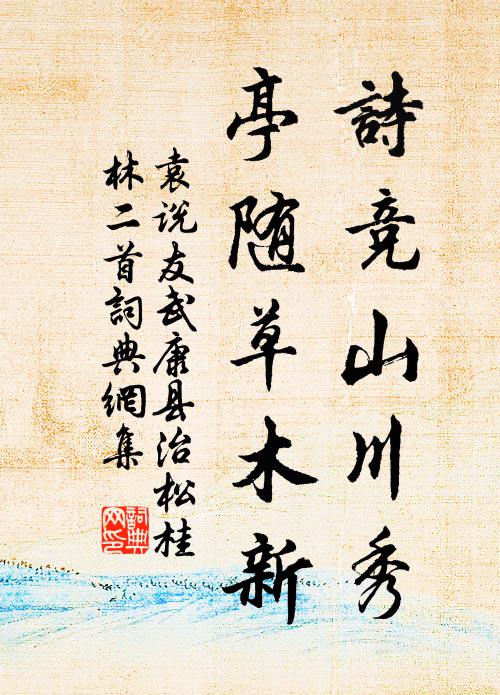 詩竞山川秀
亭随草木新
袁说友武康县治松桂
林二首詞典網集
詞典
网印